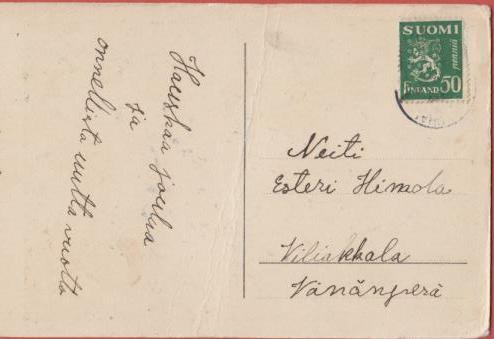 Hauskaa joulua
ja
onnellista uutta vuotta
SUOMI
penniä
FINLAND 50
Neiti
Esteri Himola
Viljakkala
Vänänperä